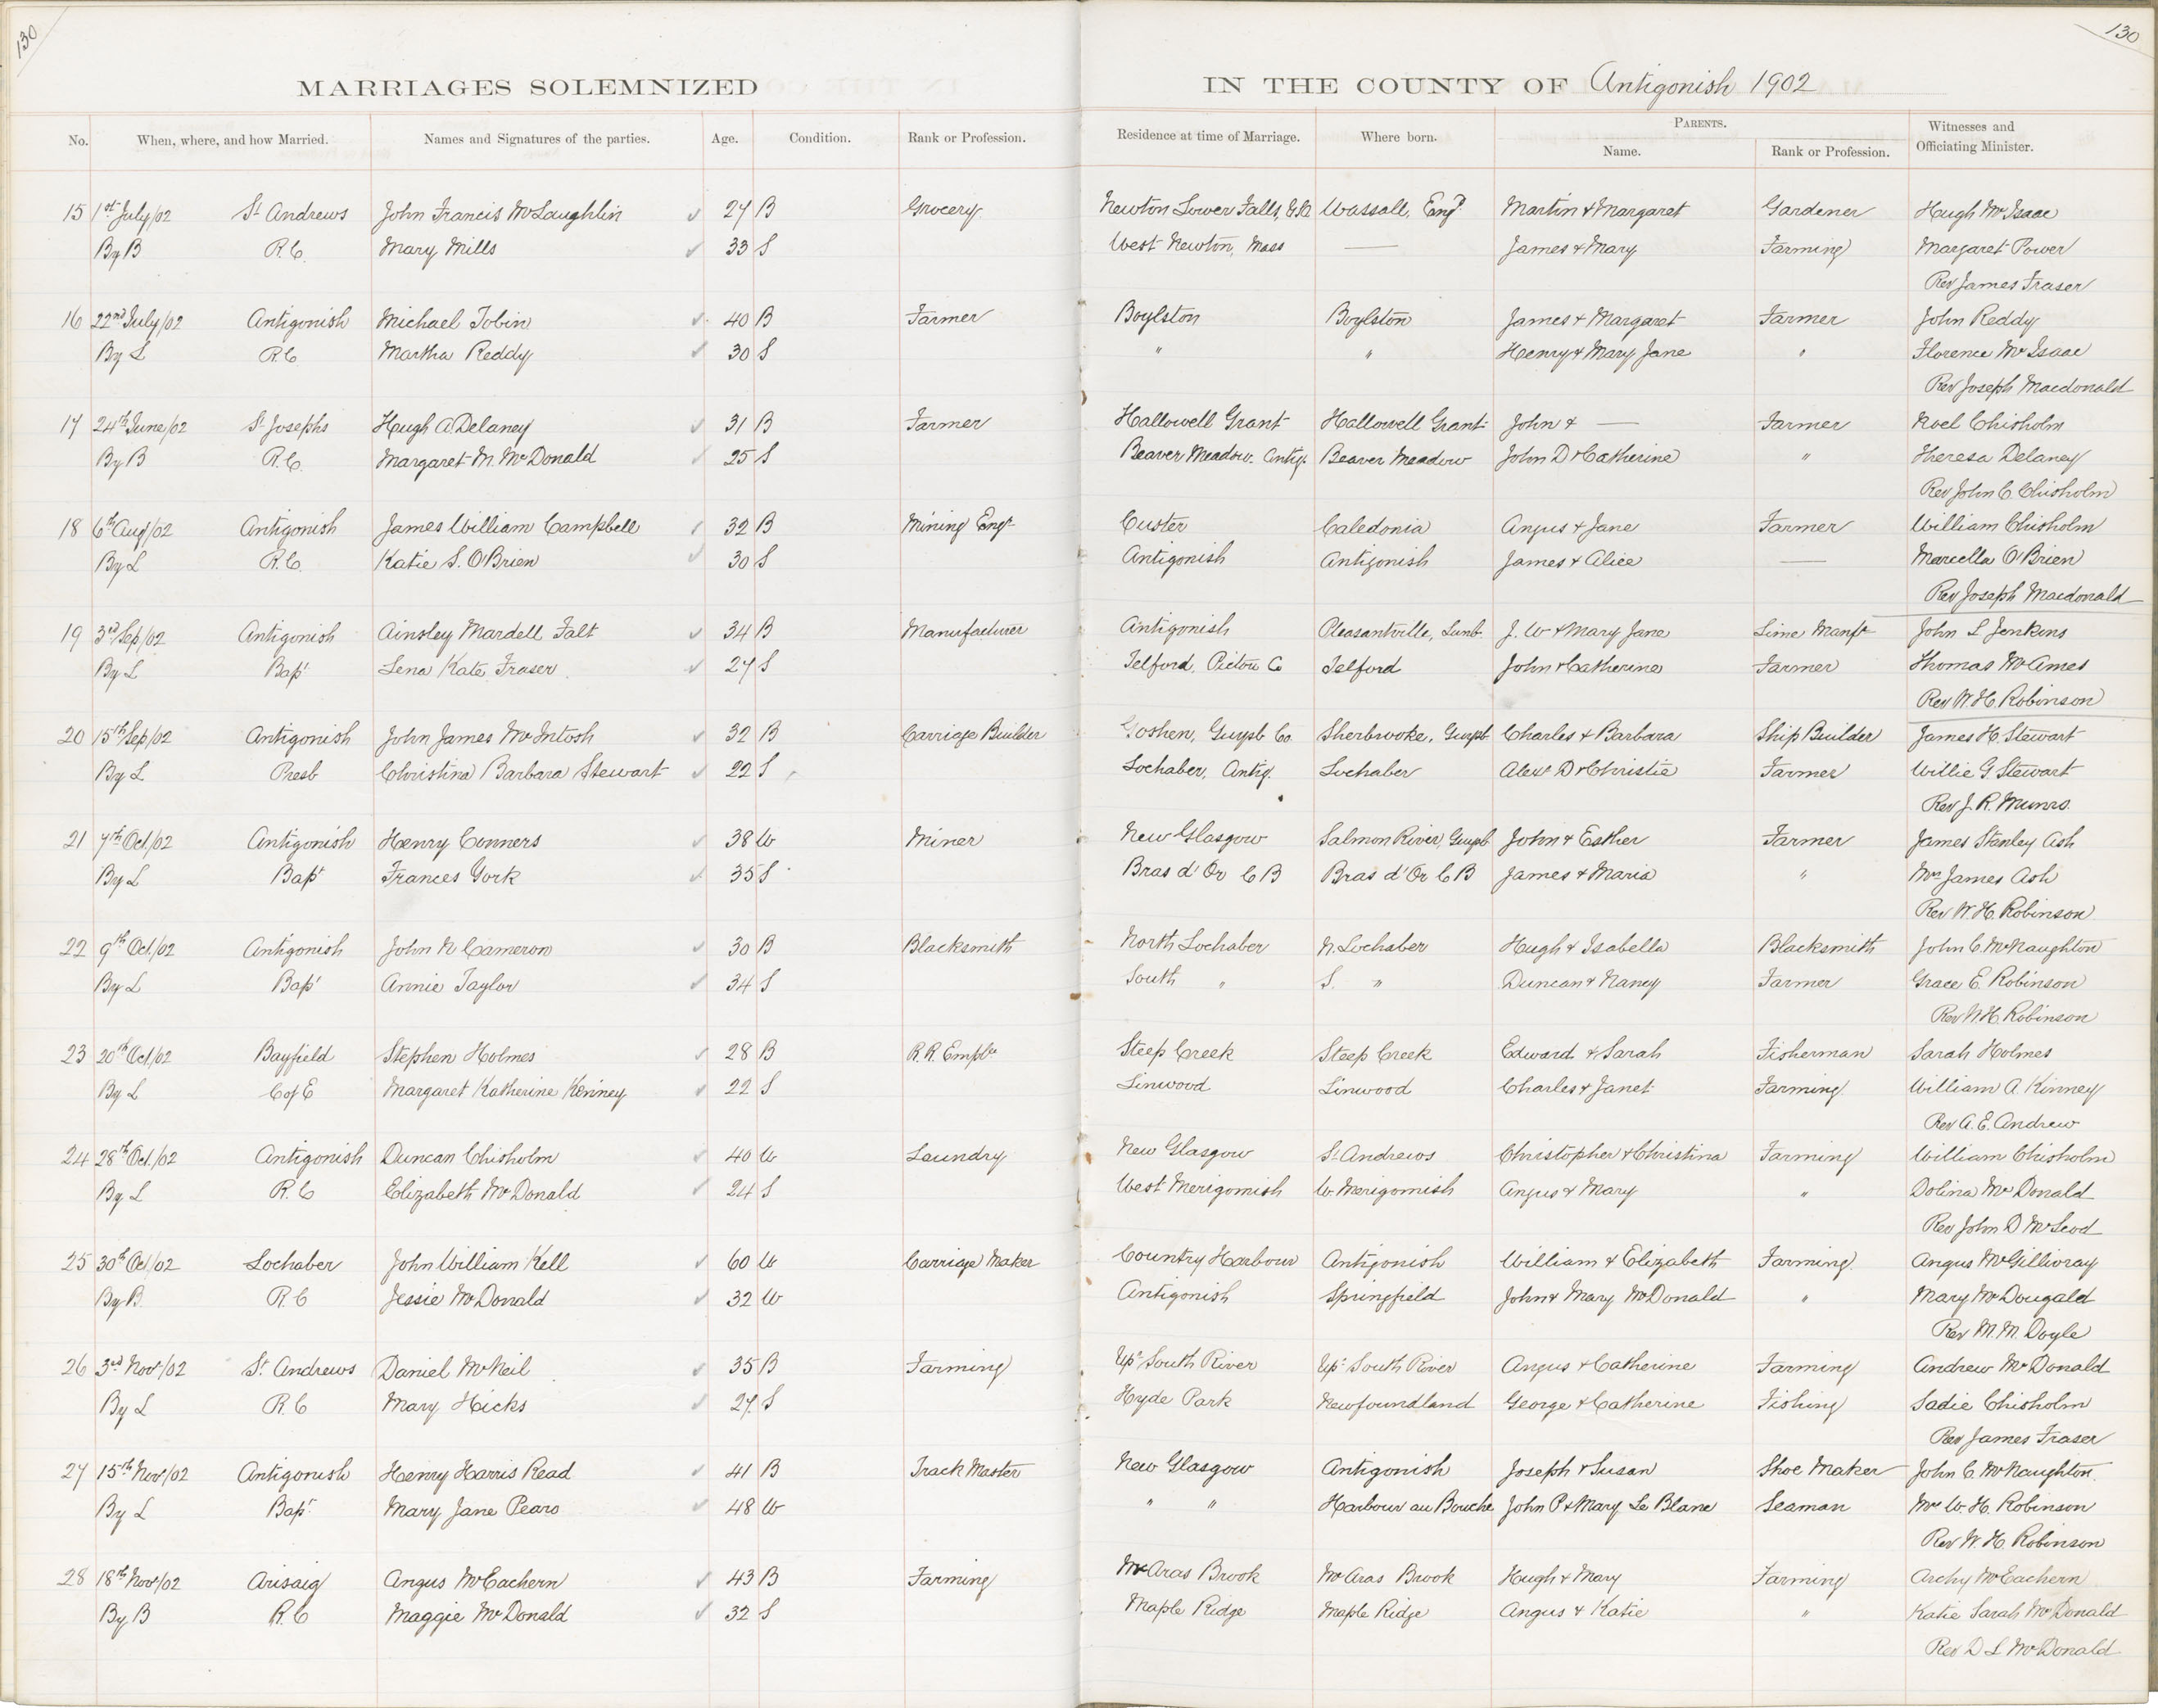 130
130
MARRIAGES SOLEMNIZED IN THE COUNTY OF Antigonish 1902
No. When, where, and how Married. Names and Signatures of the parties. Age. Condition. Rank or Profession. Residence at time of Marriage. Where born. PARENTS. Name. Rank or Profession. Witnesses and Officiating Minister.
15 1st July/02 St Andrews John Francis McLaughlin 27 B Grocery Newton Lower Falls, USA Wassall, Engd Martin & Margaret Gardener Hugh McIsaac
By B R.C. Mary Mills 33 S West Newton, Mass — James & Mary Farming Margaret Power
Rev James Fraser
16 22nd July/02 Antigonish Michael Tobin 40 B Farmer Boylston Boylston James & Margaret Farmer John Reddy
By L R.C Martha Reddy 30 S " " Henry & Mary Jane " Florence McIsaac
Rev Joseph Macdonald
17 24th June/02 St Josephs Hugh A. Delaney 31 B Farmer Hallowell Grant Hallowell Grant John & — Farmer Roel Chisholm
By B R.C. Margaret M. McDonald 25 S Beaver Meadow. Antig. Beaver Meadow John D & Catherine " Theresa Delaney
Rev John C Chisholm
18 6th Aug/02 Antigonish James William Campbell 32 B Mining Engr Custer Caledonia Angus & Jane Farmer William Chisholm
By L R.C. Katie S. OBrien 30 S Antigonish Antigonish James & Alice — Marcella O'Brien
Rev Joseph Macdonald
19 3rd Sep/02 Antigonish Ainsley Mardell Falt 34 B Manufacturer Antigonish Pleasantville, Lunb. J. W & Mary Jane Lime Manfr John L Jenkins
By L Bapt Lena Kate Fraser 27 S Telford, Pictou Co Telford John & Catherine Farmer Thomas McAmes
Rev W. H. Robinson
20 15th Sep/02 Antigonish John James McIntosh 32 B Carriage Builder Goshen, Guysb Co. Sherbrooke, Guysb. Charles & Barbara Ship Builder James H. Stewart
By L Presb Christina Barbara Stewart 22 S Lochaber, Antig. Lochaber Alexr D & Christie Farmer Willie G. Stewart
Rev J. R. Munro.
21 7th Oct/02 Antigonish Henry Conners 38 W Miner New Glasgow Salmon River, Guysb John & Esther Farmer James Stanley Ash
By L Bapt Frances York 35 S Bras d'Or C B Bras d'Or C B James & Maria " Mrs James Ash
Rev W. H. Robinson
22 9th Oct/02 Antigonish John N Cameron 30 B Blacksmith North Lochaber N. Lochaber Hugh & Isabella Blacksmith John C. McNaughton
By L Bapt Annie Taylor 34 S South " S. " Duncan & Nancy Farmer Grace E. Robinson
Rev W. H. Robinson
23 20th Oct/02 Bayfield Stephen Holmes 28 B R.R. Emplee Steep Creek Steep Creek Edward & Sarah Fisherman Sarah Holmes
By L C of E Margaret Katherine Kinney 22 S Linwood Linwood Charles & Janet Farming William A. Kinney
Rev A. E. Andrew
24 28th Oct/02 Antigonish Duncan Chisholm 40 W Laundry New Glasgow St Andrews Christopher & Christina Farming William Chisholm
By L R.C Elizabeth McDonald 24 S West Merigomish W. Merigomish Angus & Mary " Dolina McDonald
Rev John D McLeod
25 30th Oct/02 Lochaber John William Kell 60 W Carriage Maker Country Harbour Antigonish William & Elizabeth Farming Angus McGillivray
By B. R.C Jessie McDonald 32 W Antigonish Springfield John & Mary McDonald " Mary McDougald
Rev M. M. Doyle
26 3rd Nov/02 St Andrews Daniel McNeil 35 B Farming Upr South River Upr South River Angus & Catherine Farming Andrew McDonald
By L R.C Mary Hicks 27 S Hyde Park Newfoundland George & Catherine Fishing Sadie Chisholm
Rev James Fraser
27 15th Nov/02 Antigonish Henry Harris Read 41 B Track Master New Glasgow Antigonish Joseph & Susan Shoe Maker John C. McNaughton.
By L Bapt Mary Jane Pears 48 W " " Harbour au Bouche John P & Mary Le Blanc Seaman Mrs W. H. Robinson
Rev W. H. Robinson
28 18th Nov/02 Arisaig Angus McEachern 43 B Farming McAras Brook McAras Brook Hugh & Mary Farming Archy McEachern
By B R.C Maggie McDonald 32 S Maple Ridge Maple Ridge Angus & Katie " Katie Sarah McDonald
Rev D L McDonald